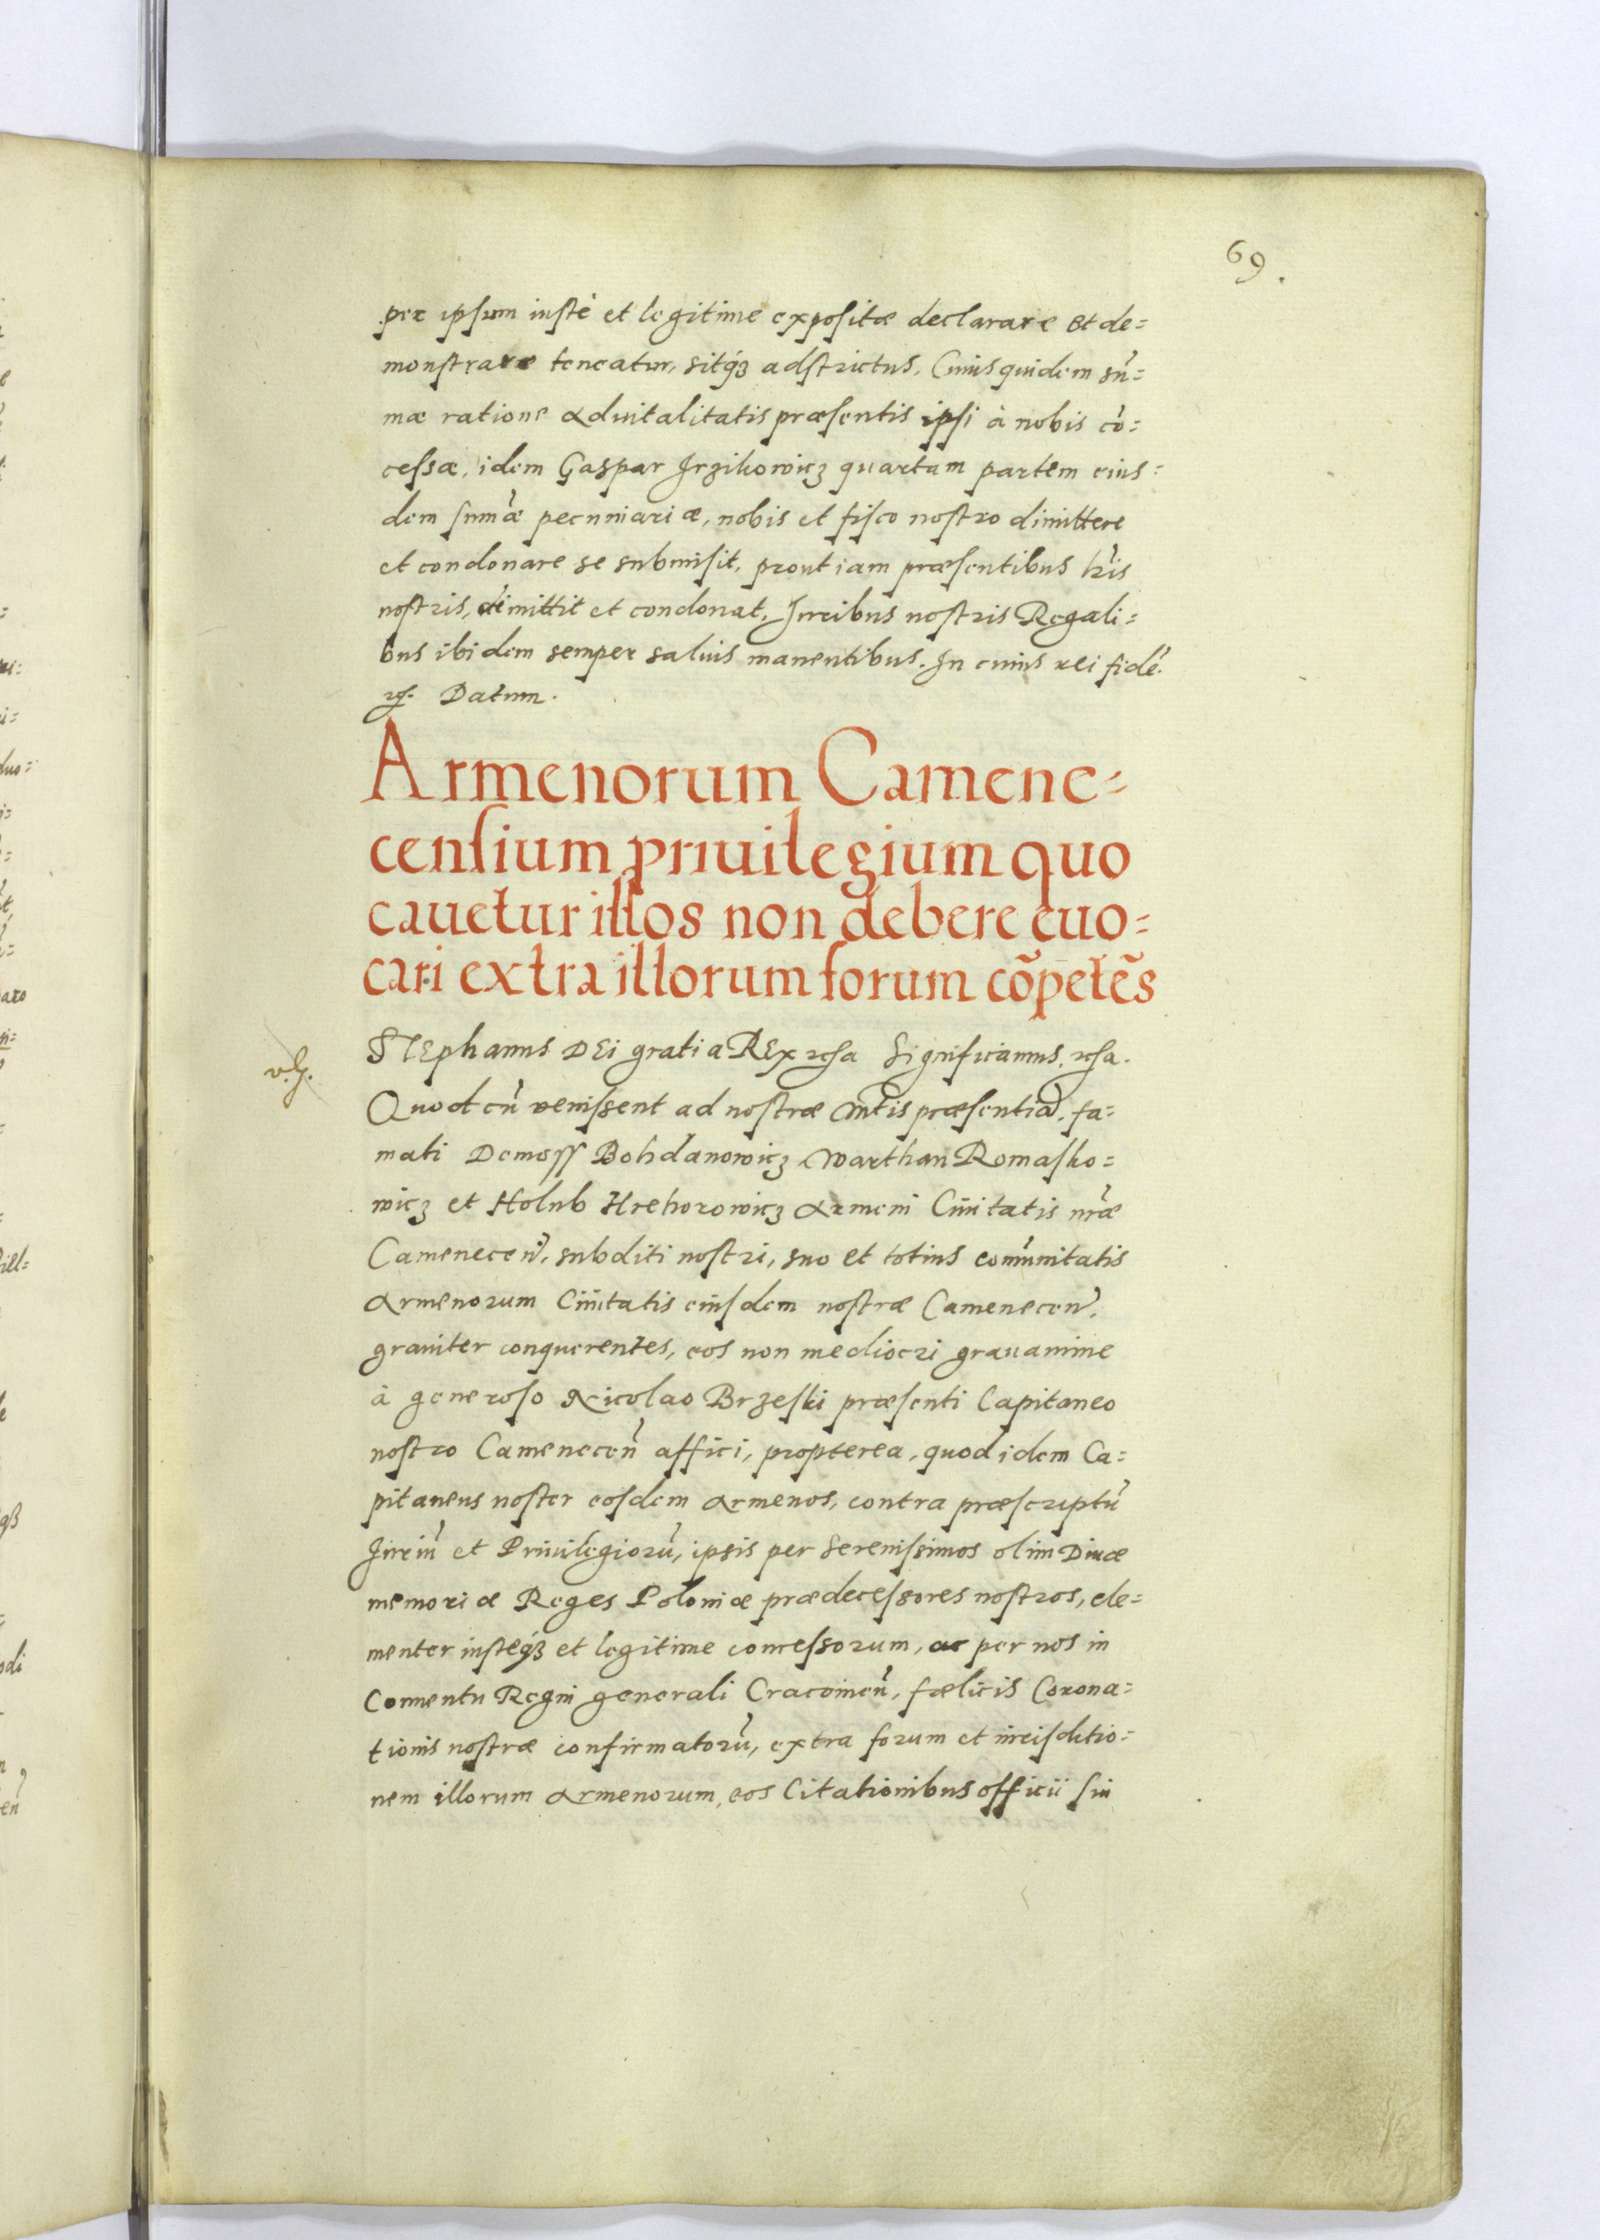 69.
per ipsum iustè et legitime expositæ declarare et de=
monstrare teneatur, sitq́ꝫ adstrictus, Cuius quidem sum̃=
mæ ratione aduitalitatis præsentis ipsi à nobis cõ=
cessæ, idem Gaspar Jrzikowicz quartam partem eius=
dem sum̃æ pecuniariæ, nobis et fisco nostro dimittere
et condonare se submisit, prout iam præsentibus lr̃is
nostris, dimittit et condonat, Juribus nostris Regali=
bus ibidem semper saluis manentibus. In cuius rei fidẽ.
Datum.
Armenorum Camene=
censium priuilegium quo
cauetur illos non debere euo=
cari extra illorum forum cõpetẽs
Stephanus Dei gratia Rex Significamus,
Quod cũ venissent ad nostræ Mtis præsentiã, fa=
mati Bohdanowicz Warthan Romasko=
wicz et Holub Hrehorowicz Armeni Ciuitatis nr̃æ
Camenecen̄, subditi nostri, suo et totius com̃unitatis
Armenorum Ciuitatis eiusdem nostræ Camenecen̄,
grauiter conquerentes, eos non mediocri grauamine
à generoso Nicolao Brzeski præsenti Capitaneo
nostro Camenecen̄ affici, propterea, quod idem Ca=
pitaneus noster eosdem Armenos, contra præscriptũ
Juriũ et Priuilegiorũ, ipsis per Serenissimos olim Diuæ
memoriæ Reges Poloniæ prædecessores nostros, cle=
menter iusteq́ꝫ et legitime concessorum, ac per nos in
Conuentu Regni generali Cracouien̄, fælicis Corona=
tionis nostræ confirmatorũ, extra forum et iurisditio=
nem illorum Armenorum, eos Citationibus officii sui